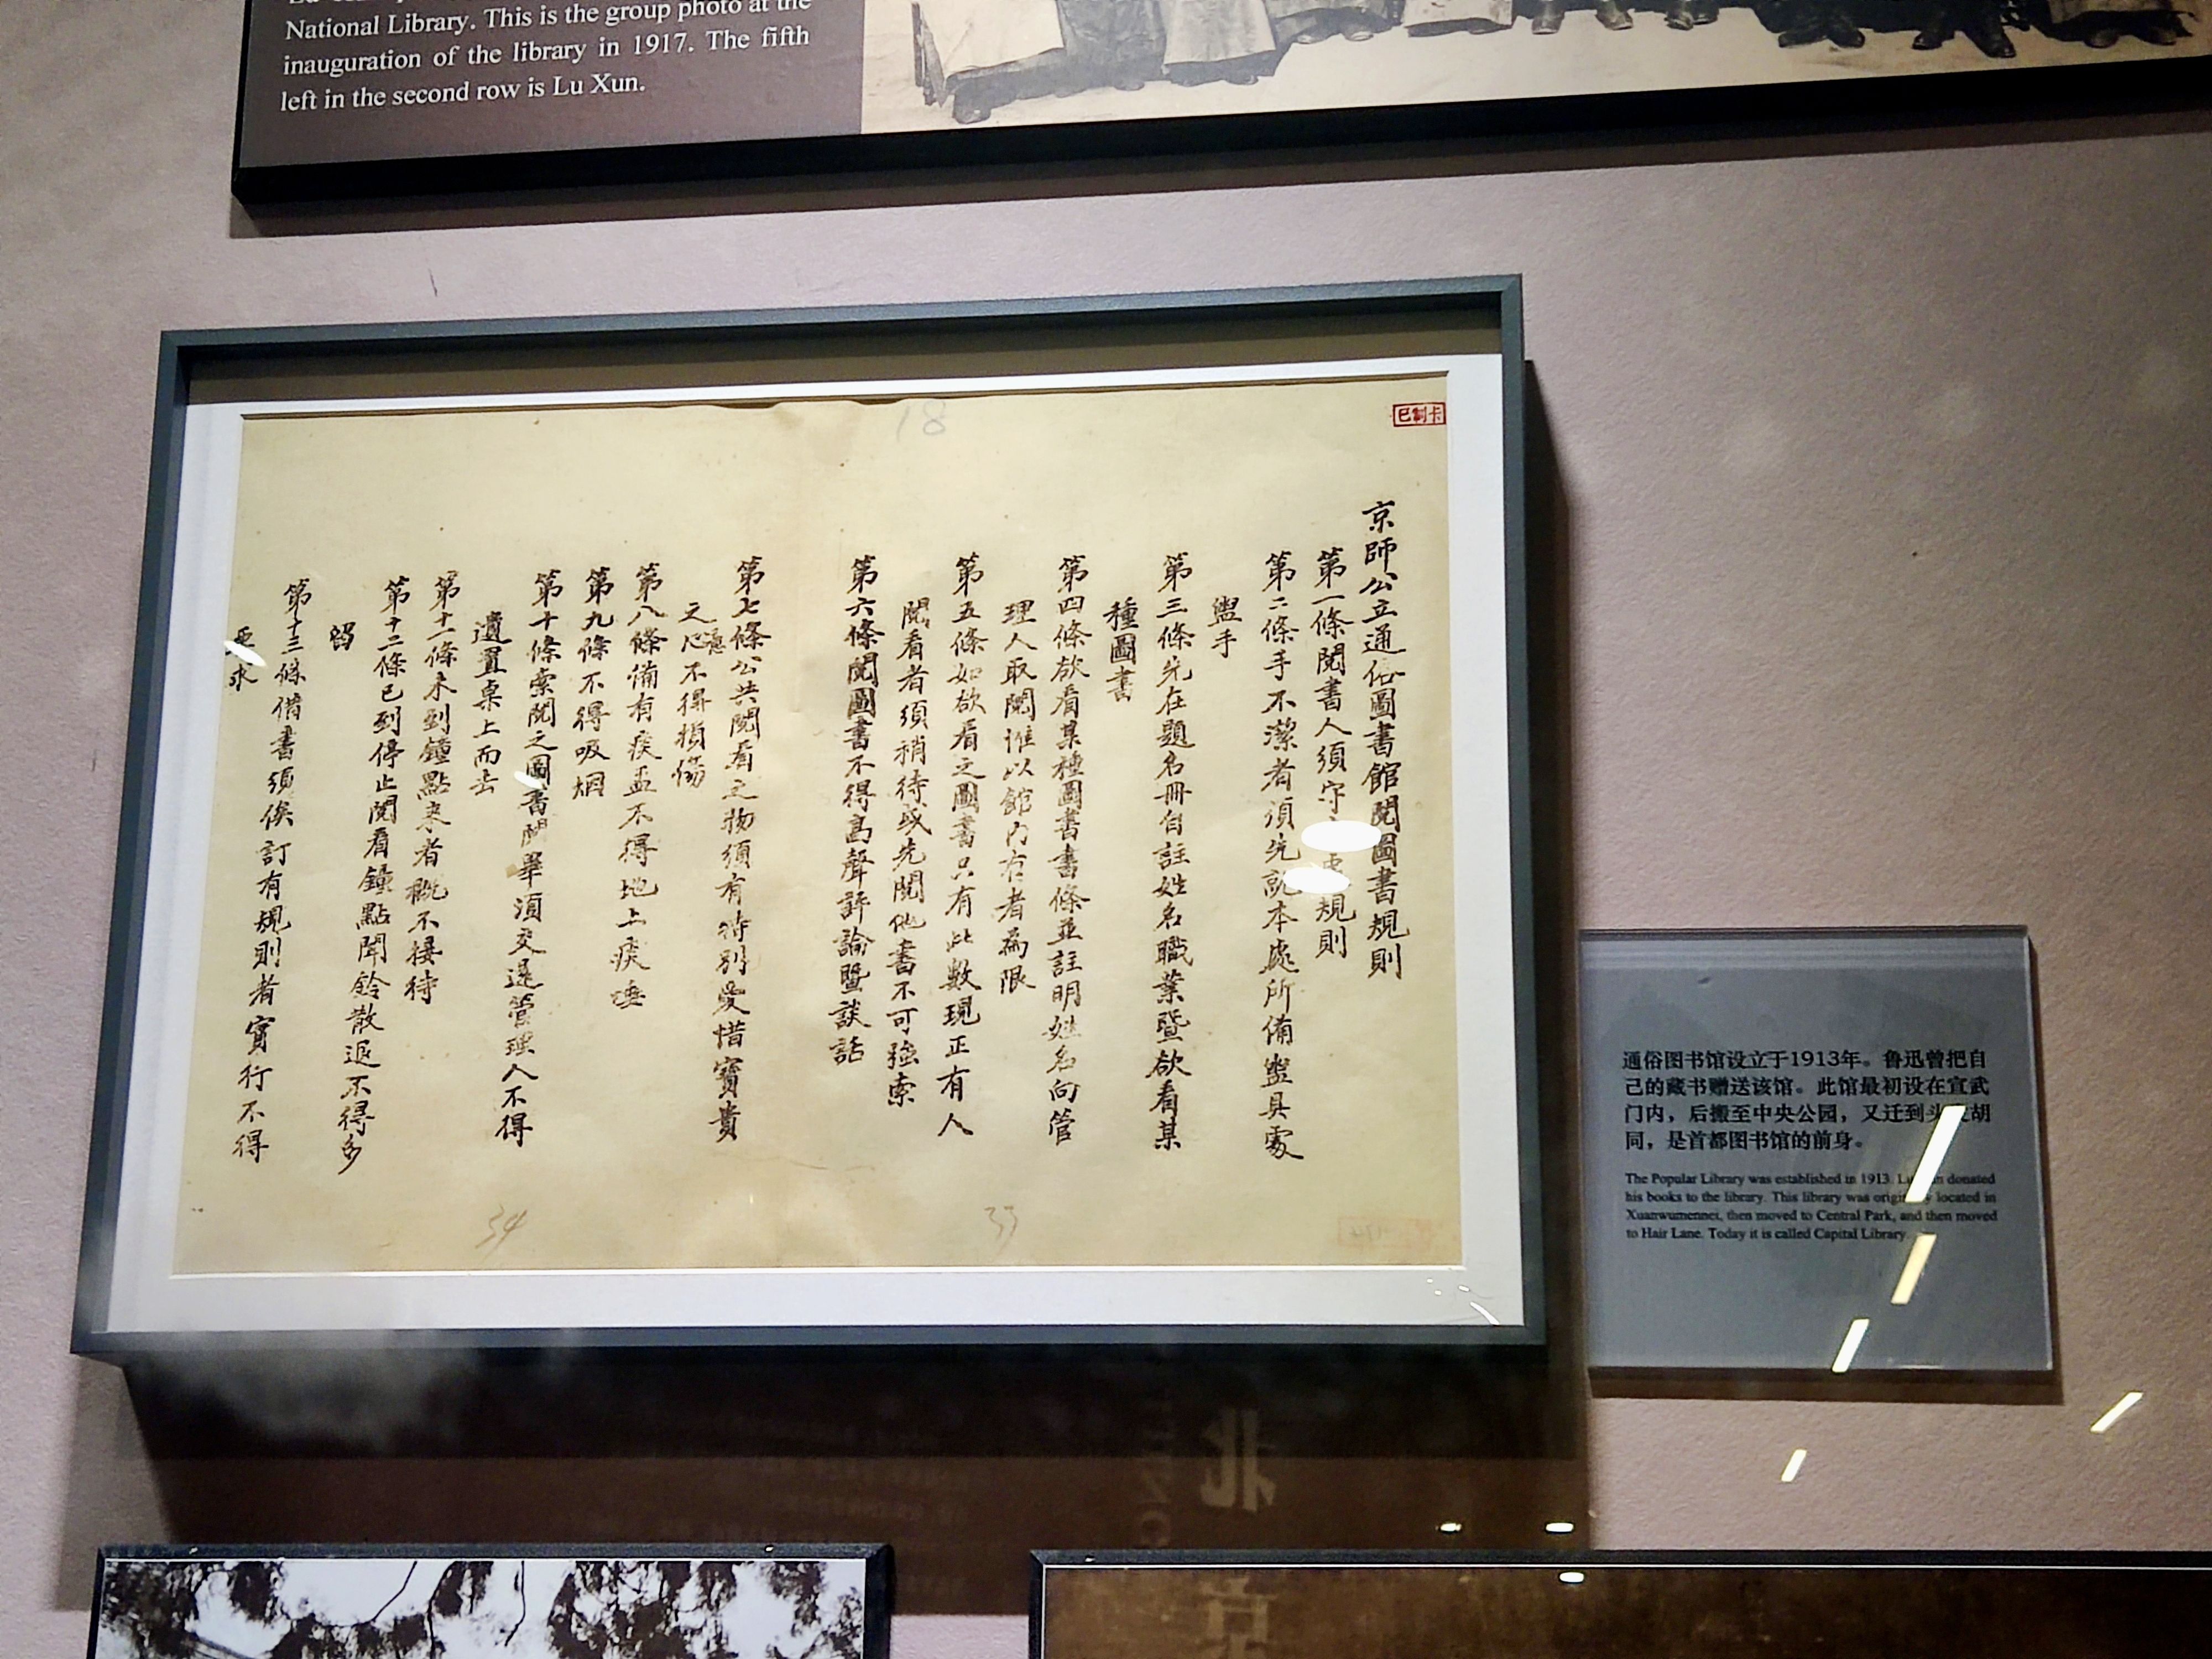 National Library. This is the group photo at the
inauguration of the library in 1917. The fifth
left in the second row is Lu Xun.
18
已制卡
京師公立通俗圖書館閱圖書規則
第一條閱書人須守規則
第二條手不潔者須先就本處所備盥具處
盥手
第三條先在題名冊自註姓名職業暨欲看某
種圖書
第四條欲看某種圖書書條並註明姓名向管
理人取閱惟以館內有者為限
第五條如欲看之圖書只有此數現正有人
閱看者須稍待或先閱他書不可強索
第六條閱圖書不得高聲評論暨談話
第七條公共閱看之物須有特別愛惜寶貴
之心不得損傷
第八條備有痰盂不得地上痰唾
第九條不得吸烟
第十條索閱之圖書閱畢須交還管理人不得
遺置桌上而去
第十一條未到鐘點來者概不接待
第十二條已到停止閱看鐘點聞鈴散退不得多
第十三條借書須俟訂有規則者實行不得
要求
34
33
通俗图书馆设立于1913年。鲁迅曾把自
己的藏书赠送该馆。此馆最初设在宣武
门内，后搬至中央公园，又迁到头胡
同，是首都图书馆的前身。
The Popular Library was established in 1913. donated
his books to the library. This library was located in
Xuanwumennei, then moved to Central Park, and then moved
to Hair Lane. Today it is called Capital Library
北
京